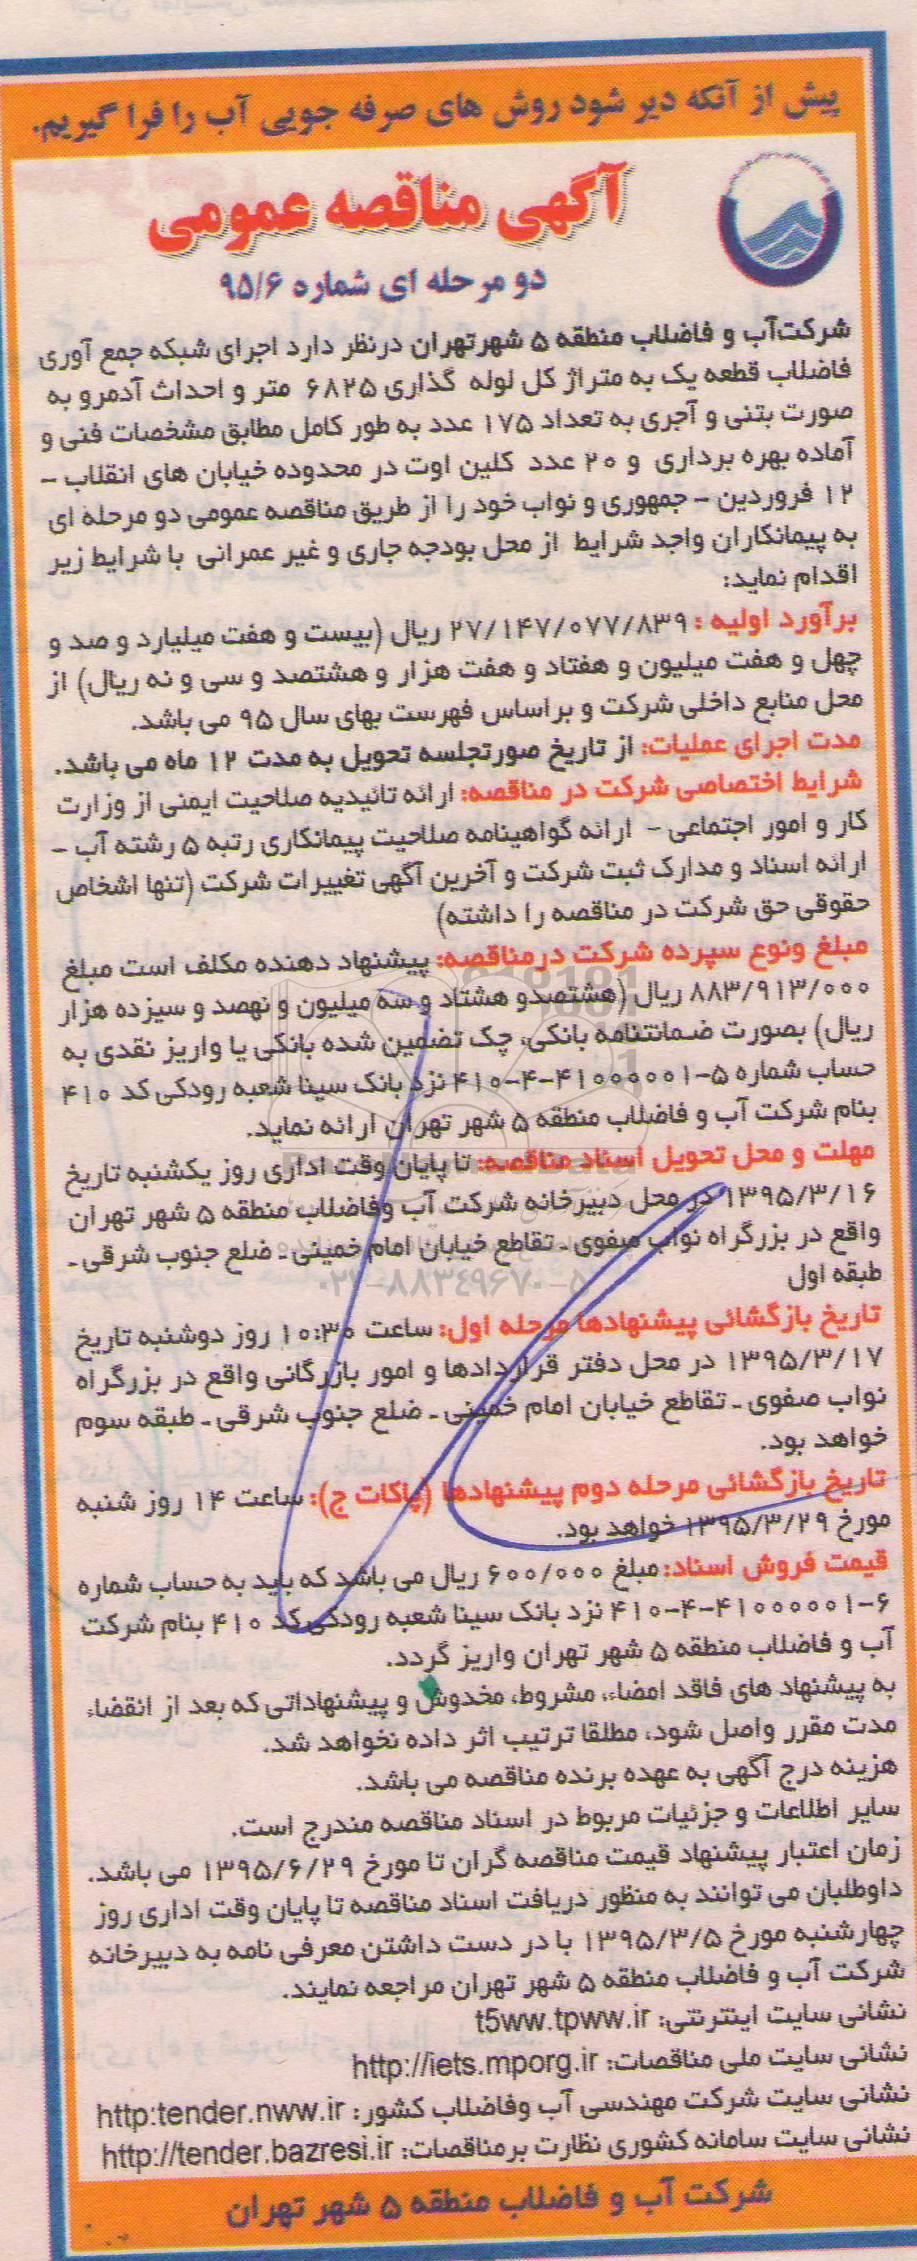 پیش از آنکه دیر شود روش های صرفه جویی آب را فرا گیریم.
آگهی مناقصه عمومی
دو مرحله ای شماره ۹۵/۶
شرکت آب و فاضلاب منطقه ۵ شهر تهران درنظر دارد اجرای شبکه جمع آوری
فاضلاب قطعه یک به متراژ کل لوله گذاری ۶۸۲۵ متر و احداث آدمرو به
صورت بتنی و آجری به تعداد ۱۷۵ عدد به طور کامل مطابق مشخصات فنی و
آماده بهره برداری و ۲۰ عدد کلین اوت در محدوده خیابان های انقلاب –
۱۲ فروردین – جمهوری و نواب خود را از طریق مناقصه عمومی دو مرحله ای
به پیمانکاران واجد شرایط از محل بودجه جاری و غیر عمرانی با شرایط زیر
اقدام نماید:
برآورد اولیه : ۲۷/۱۴۷/۰۷۷/۸۳۹ ریال (بیست و هفت میلیارد و صد و
چهل و هفت میلیون و هفتاد و هفت هزار و هشتصد و سی و نه ریال) از
محل منابع داخلی شرکت و براساس فهرست بهای سال ۹۵ می باشد.
مدت اجرای عملیات: از تاریخ صورتجلسه تحویل به مدت ۱۲ ماه می باشد.
شرایط اختصاصی شرکت در مناقصه: ارائه تائیدیه صلاحیت ایمنی از وزارت
کار و امور اجتماعی – ارائه گواهینامه صلاحیت پیمانکاری رتبه ۵ رشته آب –
ارائه اسناد و مدارک ثبت شرکت و آخرین آگهی تغییرات شرکت (تنها اشخاص
حقوقی حق شرکت در مناقصه را داشته)
مبلغ ونوع سپرده شرکت درمناقصه: پیشنهاد دهنده مکلف است مبلغ
۸۸۳/۹۱۳/۰۰۰ ریال (هشتصدو هشتاد و سه میلیون و نهصد و سیزده هزار
ریال) بصورت ضمانتنامه بانکی، چک تضمین شده بانکی یا واریز نقدی به
حساب شماره ۵-۴۱۰۰۰۰۰۱-۴-۴۱۰ نزد بانک سینا شعبه رودکی کد ۴۱۰
بنام شرکت آب و فاضلاب منطقه ۵ شهر تهران ارائه نماید.
مهلت و محل تحویل اسناد مناقصه: تا پایان وقت اداری روز یکشنبه تاریخ
۱۳۹۵/۳/۱۶ در محل دبیرخانه شرکت آب وفاضلاب منطقه ۵ شهر تهران
واقع در بزرگراه نواب صفوی ـ تقاطع خیابان امام خمینی ـ ضلع جنوب شرقی ـ
طبقه اول
۰۲۱-۸۸۳۴۹۶۷۰-۵
تاریخ بازگشائی پیشنهادها مرحله اول: ساعت ۱۰:۳۰ روز دوشنبه تاریخ
۱۳۹۵/۳/۱۷ در محل دفتر قراردادها و امور بازرگانی واقع در بزرگراه
نواب صفوی ـ تقاطع خیابان امام خمینی ـ ضلع جنوب شرقی ـ طبقه سوم
خواهد بود.
تاریخ بازگشائی مرحله دوم پیشنهادها (پاکات ج): ساعت ۱۴ روز شنبه
مورخ ۱۳۹۵/۳/۲۹ خواهد بود.
قیمت فروش اسناد: مبلغ ۶۰۰/۰۰۰ ریال می باشد که باید به حساب شماره
۶-۴۱۰۰۰۰۰۱-۴-۴۱۰ نزد بانک سینا شعبه رودکی کد ۴۱۰ بنام شرکت
آب و فاضلاب منطقه ۵ شهر تهران واریز گردد.
به پیشنهاد های فاقد امضاء، مشروط، مخدوش و پیشنهاداتی که بعد از انقضاء
مدت مقرر واصل شود، مطلقا ترتیب اثر داده نخواهد شد.
هزینه درج آگهی به عهده برنده مناقصه می باشد.
سایر اطلاعات و جزئیات مربوط در اسناد مناقصه مندرج است.
زمان اعتبار پیشنهاد قیمت مناقصه گران تا مورخ ۱۳۹۵/۶/۲۹ می باشد.
داوطلبان می توانند به منظور دریافت اسناد مناقصه تا پایان وقت اداری روز
چهارشنبه مورخ ۱۳۹۵/۳/۵ با در دست داشتن معرفی نامه به دبیرخانه
شرکت آب و فاضلاب منطقه ۵ شهر تهران مراجعه نمایند.
نشانی سایت اینترنتی: t5ww.tpww.ir
نشانی سایت ملی مناقصات: http://iets.mporg.ir
نشانی سایت شرکت مهندسی آب وفاضلاب کشور: http:tender.nww.ir
نشانی سایت سامانه کشوری نظارت برمناقصات: http://tender.bazresi.ir
شرکت آب و فاضلاب منطقه ۵ شهر تهران